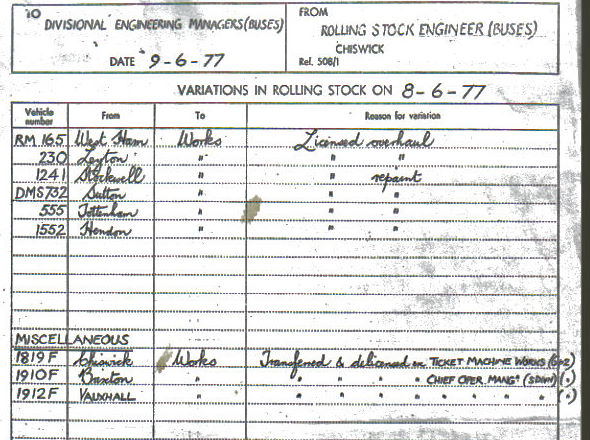 TO
DIVISIONAL ENGINEERING MANAGERS (BUSES)
DATE 9-6-77
FROM
ROLLING STOCK ENGINEER (BUSES)
CHISWICK
Rel. 508/1
VARIATIONS IN ROLLING STOCK ON 8-6-77
Vehicle number From To Reason for variation
RM 165 West Ham Works Licensed overhaul
230 Leyton " " "
1241 Stockwell " " repaint
DMS732 Sutton " " "
555 Tottenham " " "
1552 Hendon " " "
MISCELLANEOUS
1819F Chiswick Works Transferred & delicensed ex TICKET MACHINE WORKS
1910F Brixton " " " " " CHIEF OPER. MANGR
1912F VAUXHALL " " " " " " " " "